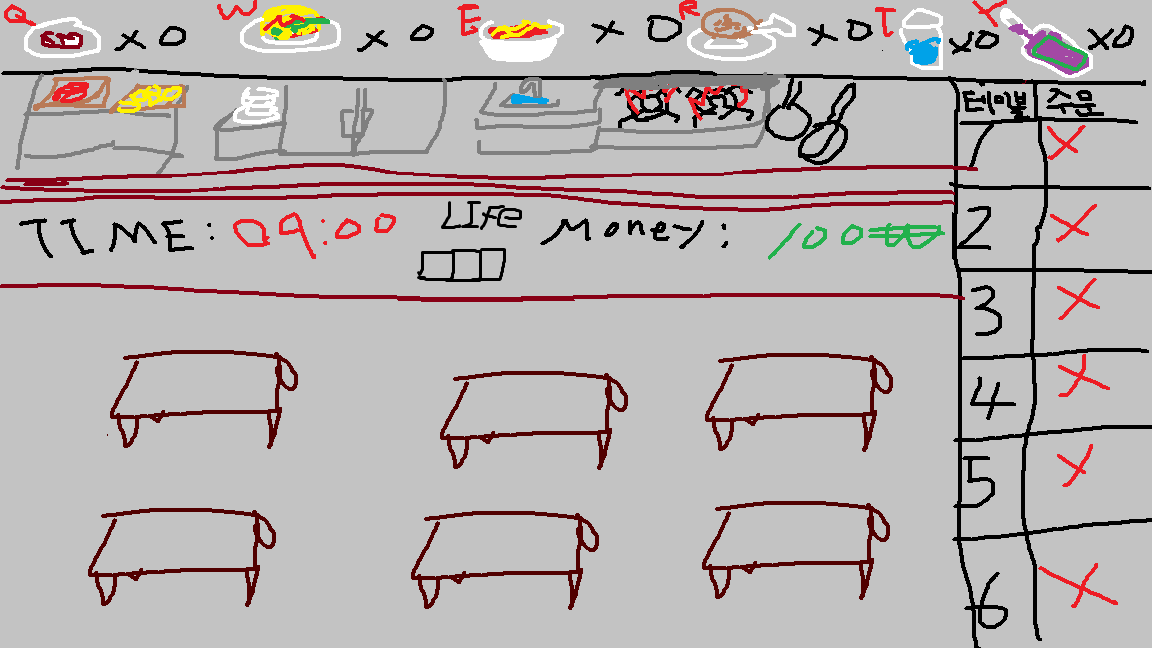 Q x 0 W x 0 E x 0 R x 0 T x 0 Y x 0
테이블 주문
TIME: 09:00 LIFE Money: 100₩
1 X
2 X
3 X
4 X
5 X
6 X